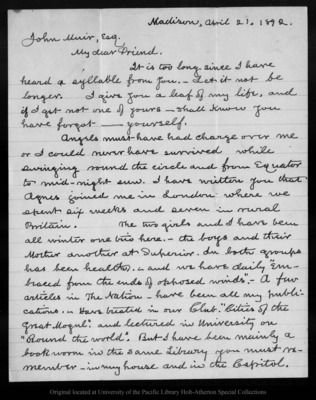 Madison, April 21, 1892.
John Muir, Esq.
My dear Friend.
It is too long since I have
heard a syllable from you. - Let it not be
longer. I give you a leaf of my life, and
if I get not one of yours - shall know you
have forgot — yourself.
Angels must have had charge over me
or I could never have survived while
swinging round the circle and from Equator
to mid-night sun. I have written you that
Agnes joined me in London where we
spent six weeks and seven in rural
Britain. The two girls and I have been
all winter one trio here. - the boys and their
Mother another at Superior. In both groups
has been health, - and we have daily "Em-
braced from the ends of opposed winds". - A few
articles in The Nation - have been all my publi-
cations. - Have treated in our Club. "Cities of the
Great Mogul". and lectured in University on
"Round the world". But I have been mainly a
book worm in the same Library you must re-
member - in my house and in the Capitol.
Original located at University of the Pacific Library Holt-Atherton Special Collections